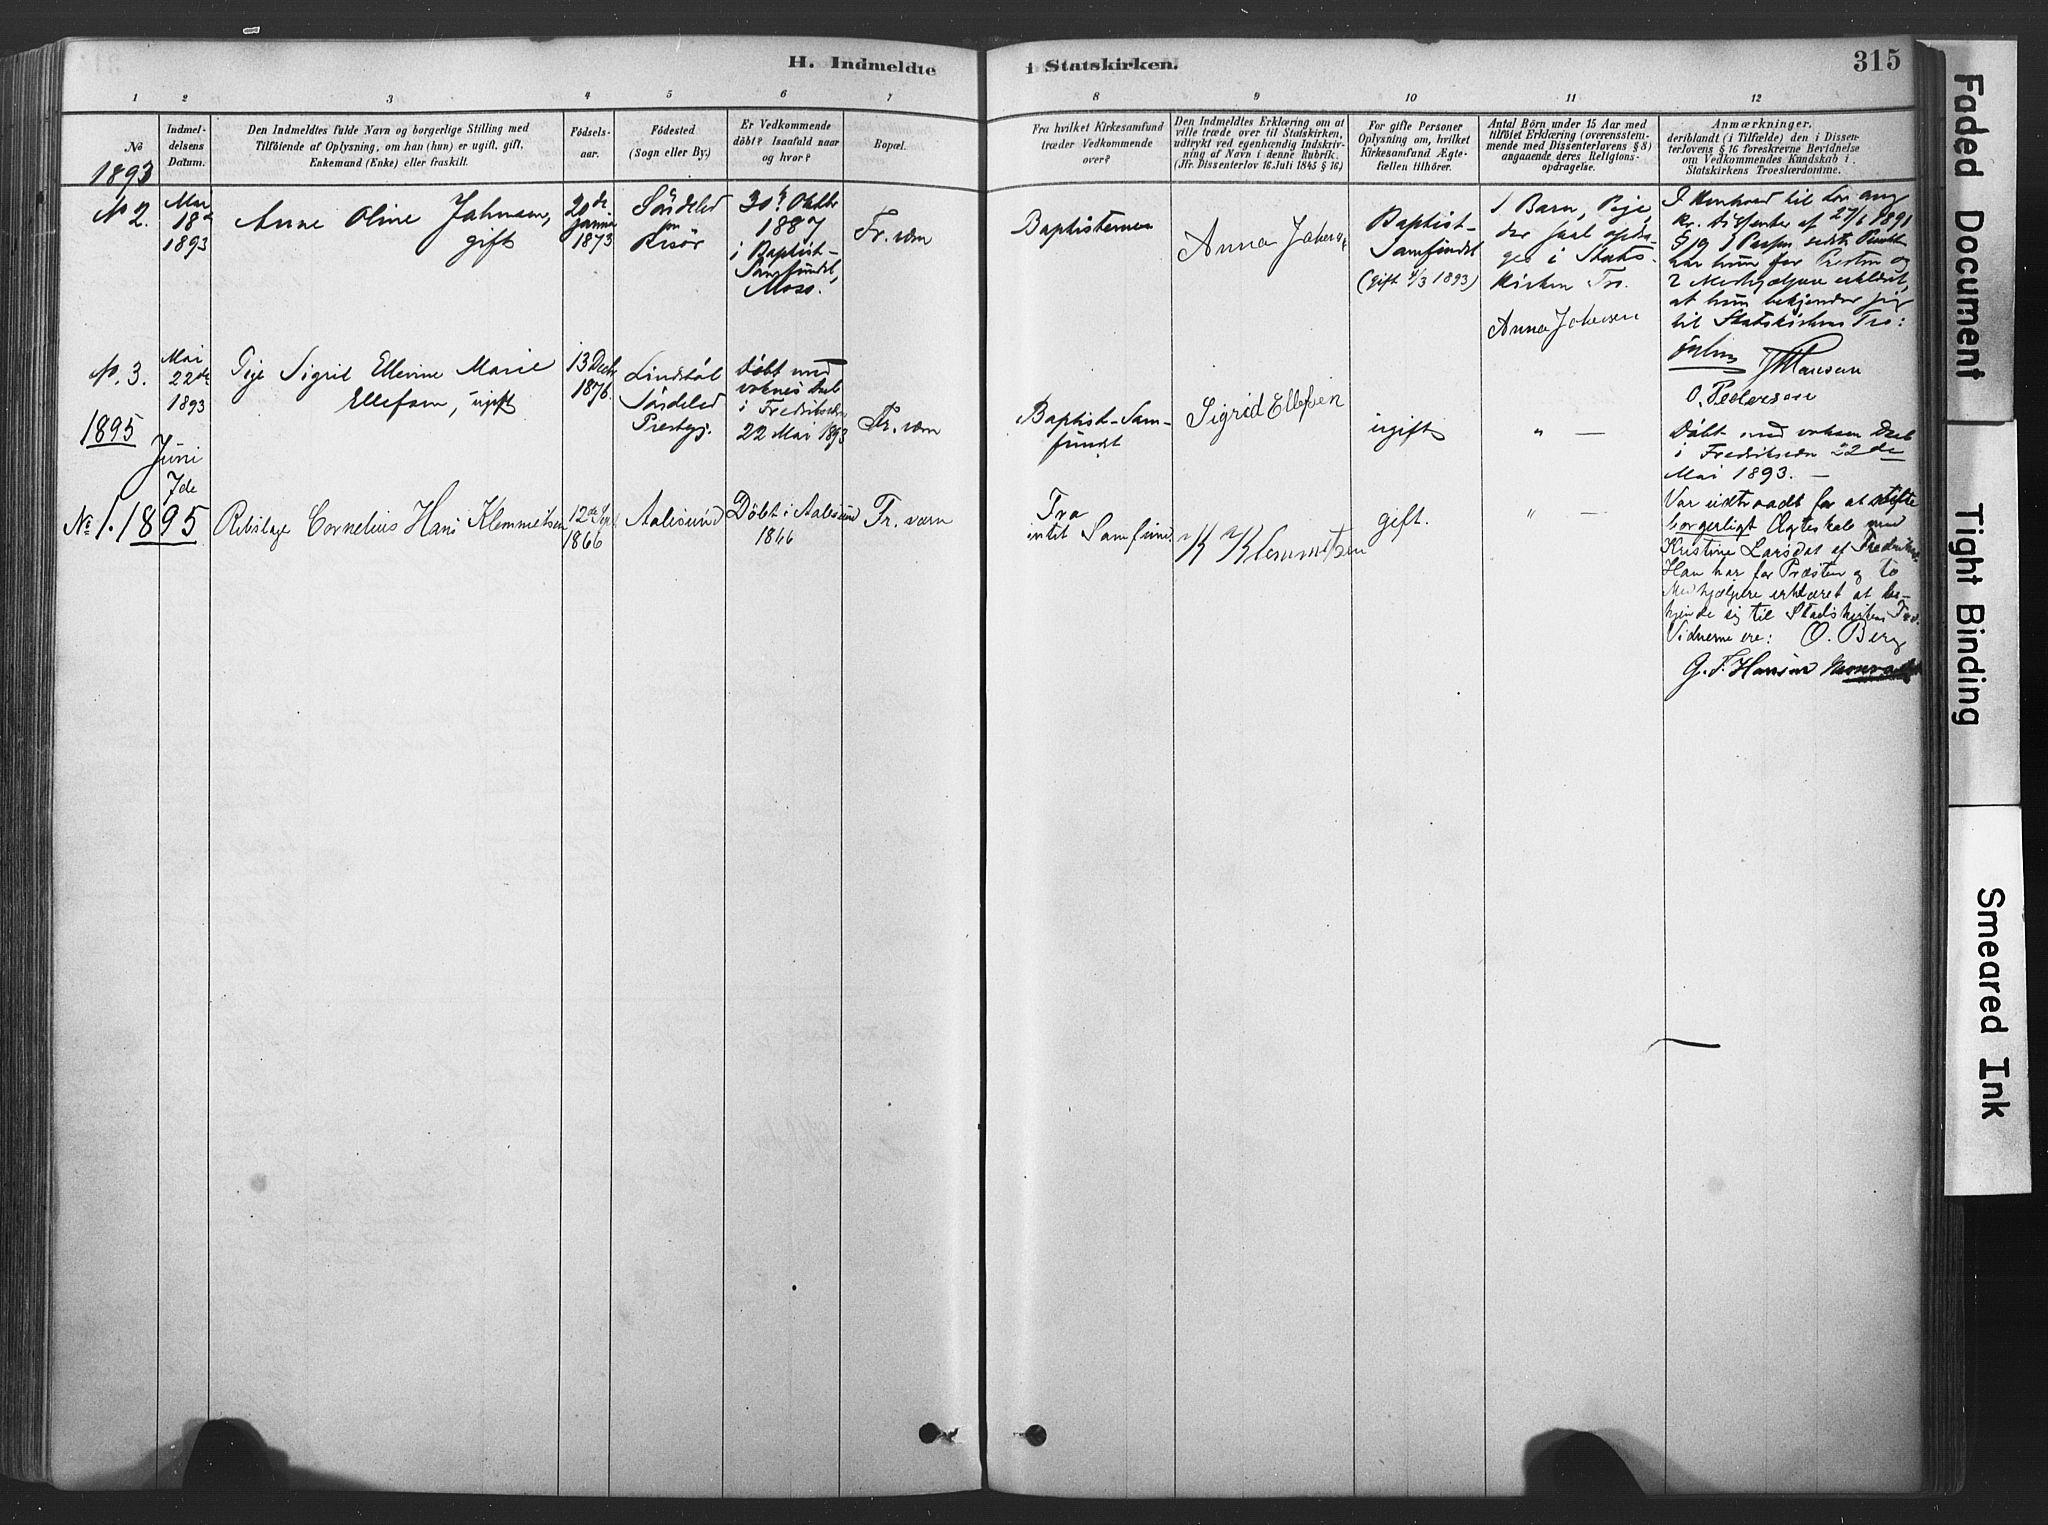 H. Indmeldte i Statskirken.
315
1
2
3
4
5
6
7
8
9
10
11
12
No
Indmel-
delsens
Datum.
Den Indmeldtes fulde Navn og borgerlige Stilling med
Tilföiende af Oplysning, om han (hun) er ugift, gift,
Enkemand (Enke) eller fraskilt.
Födsels-
aar.
Födested
(Sogn eller By.)
Er Vedkommende
döbt? Isaafald naar
og hvor?
Bopæl.
Fra hvilket Kirkesamfund
træder Vedkommende
over?
Den Indmeldtes Erklæring om at
ville træde over til Statskirken,
udtrykt ved egenhændig Indskriv-
ning af Navn i denne Rubrik.
(Jfr. Dissenterlov 16. Juli 1845 § 16.)
For gifte Personer
Oplysning om, hvilket
Kirkesamfund Ægte-
fællen tilhörer.
Antal Börn under 15 Aar med
tilföiet Erklæring (overensstem-
mende med Dissenterlovens § 8)
angaaende deres Religions-
opdragelse.
Anmærkninger,
deriblandt (i Tilfælde) den i Dissen-
terlovens § 16 foreskrevne Bevidnelse
om Vedkommendes Kundskab i
Statskirkens Troeslærdomme.
1893
No 2.
Mai
18de
1893
Anne Oline Johnsen,
gift
20de
Januar
1873
Söndeled
pr
Risör
30te Oktbr
1887
i Baptist-
Samfundet,
Moss.
Fr. værn
Baptisterne
Anna Johnsen
Baptist-
Samfundet
(gift 4/3 1893)
1 Barn, Pige,
der skal opdra-
ges i Stats-
kirkens Tro.
Anna Johnsen
I Henhold til Lov ang
kr. Dissenter af 27/6 1891
§ 19 sidste Punktum
har hun for Presten og
2 Medhjælpere erklæret,
at hun bekjender sig
til Statskirkens Tro:
Hansen
O. Pedersen
N. 3.
Mai
22de
1893
Pige Sigrid Ellevine Marie
Ellefsen, ugift
13 Decbr
1876
Lindstöl
Söndeled
Prestegj.
Döbt med
voksnes Daab
i Fredriksværn
22 Mai 1893
Fr. værn
Baptist-Sam-
fundet
Sigrid Ellefsen
ugift
" —
Döbt med voksen Daab
i Fredriksværn 22de
Mai 1893. —
1895
Juni
7de
No 1. 1895
Rebslager Cornelius Hans Klemmetsen
12de Sept
1866
Aalesund
Döbt i Aalesund
1866
Fr. værn
Fra
intet Samfund
K Klemmetsen
gift.
" —
Var udtraadt for at stifte
borgerligt Ægteskab med
Kristine Larsdat af Fredriksv.
Han har for Præsten og to
Medhjælpere erklæret at be-
kjende sig til Statskirkens Tro.
Vidnerne ere: O. Berg
G. F. Hansen
Faded Document
Tight Binding
Smeared Ink